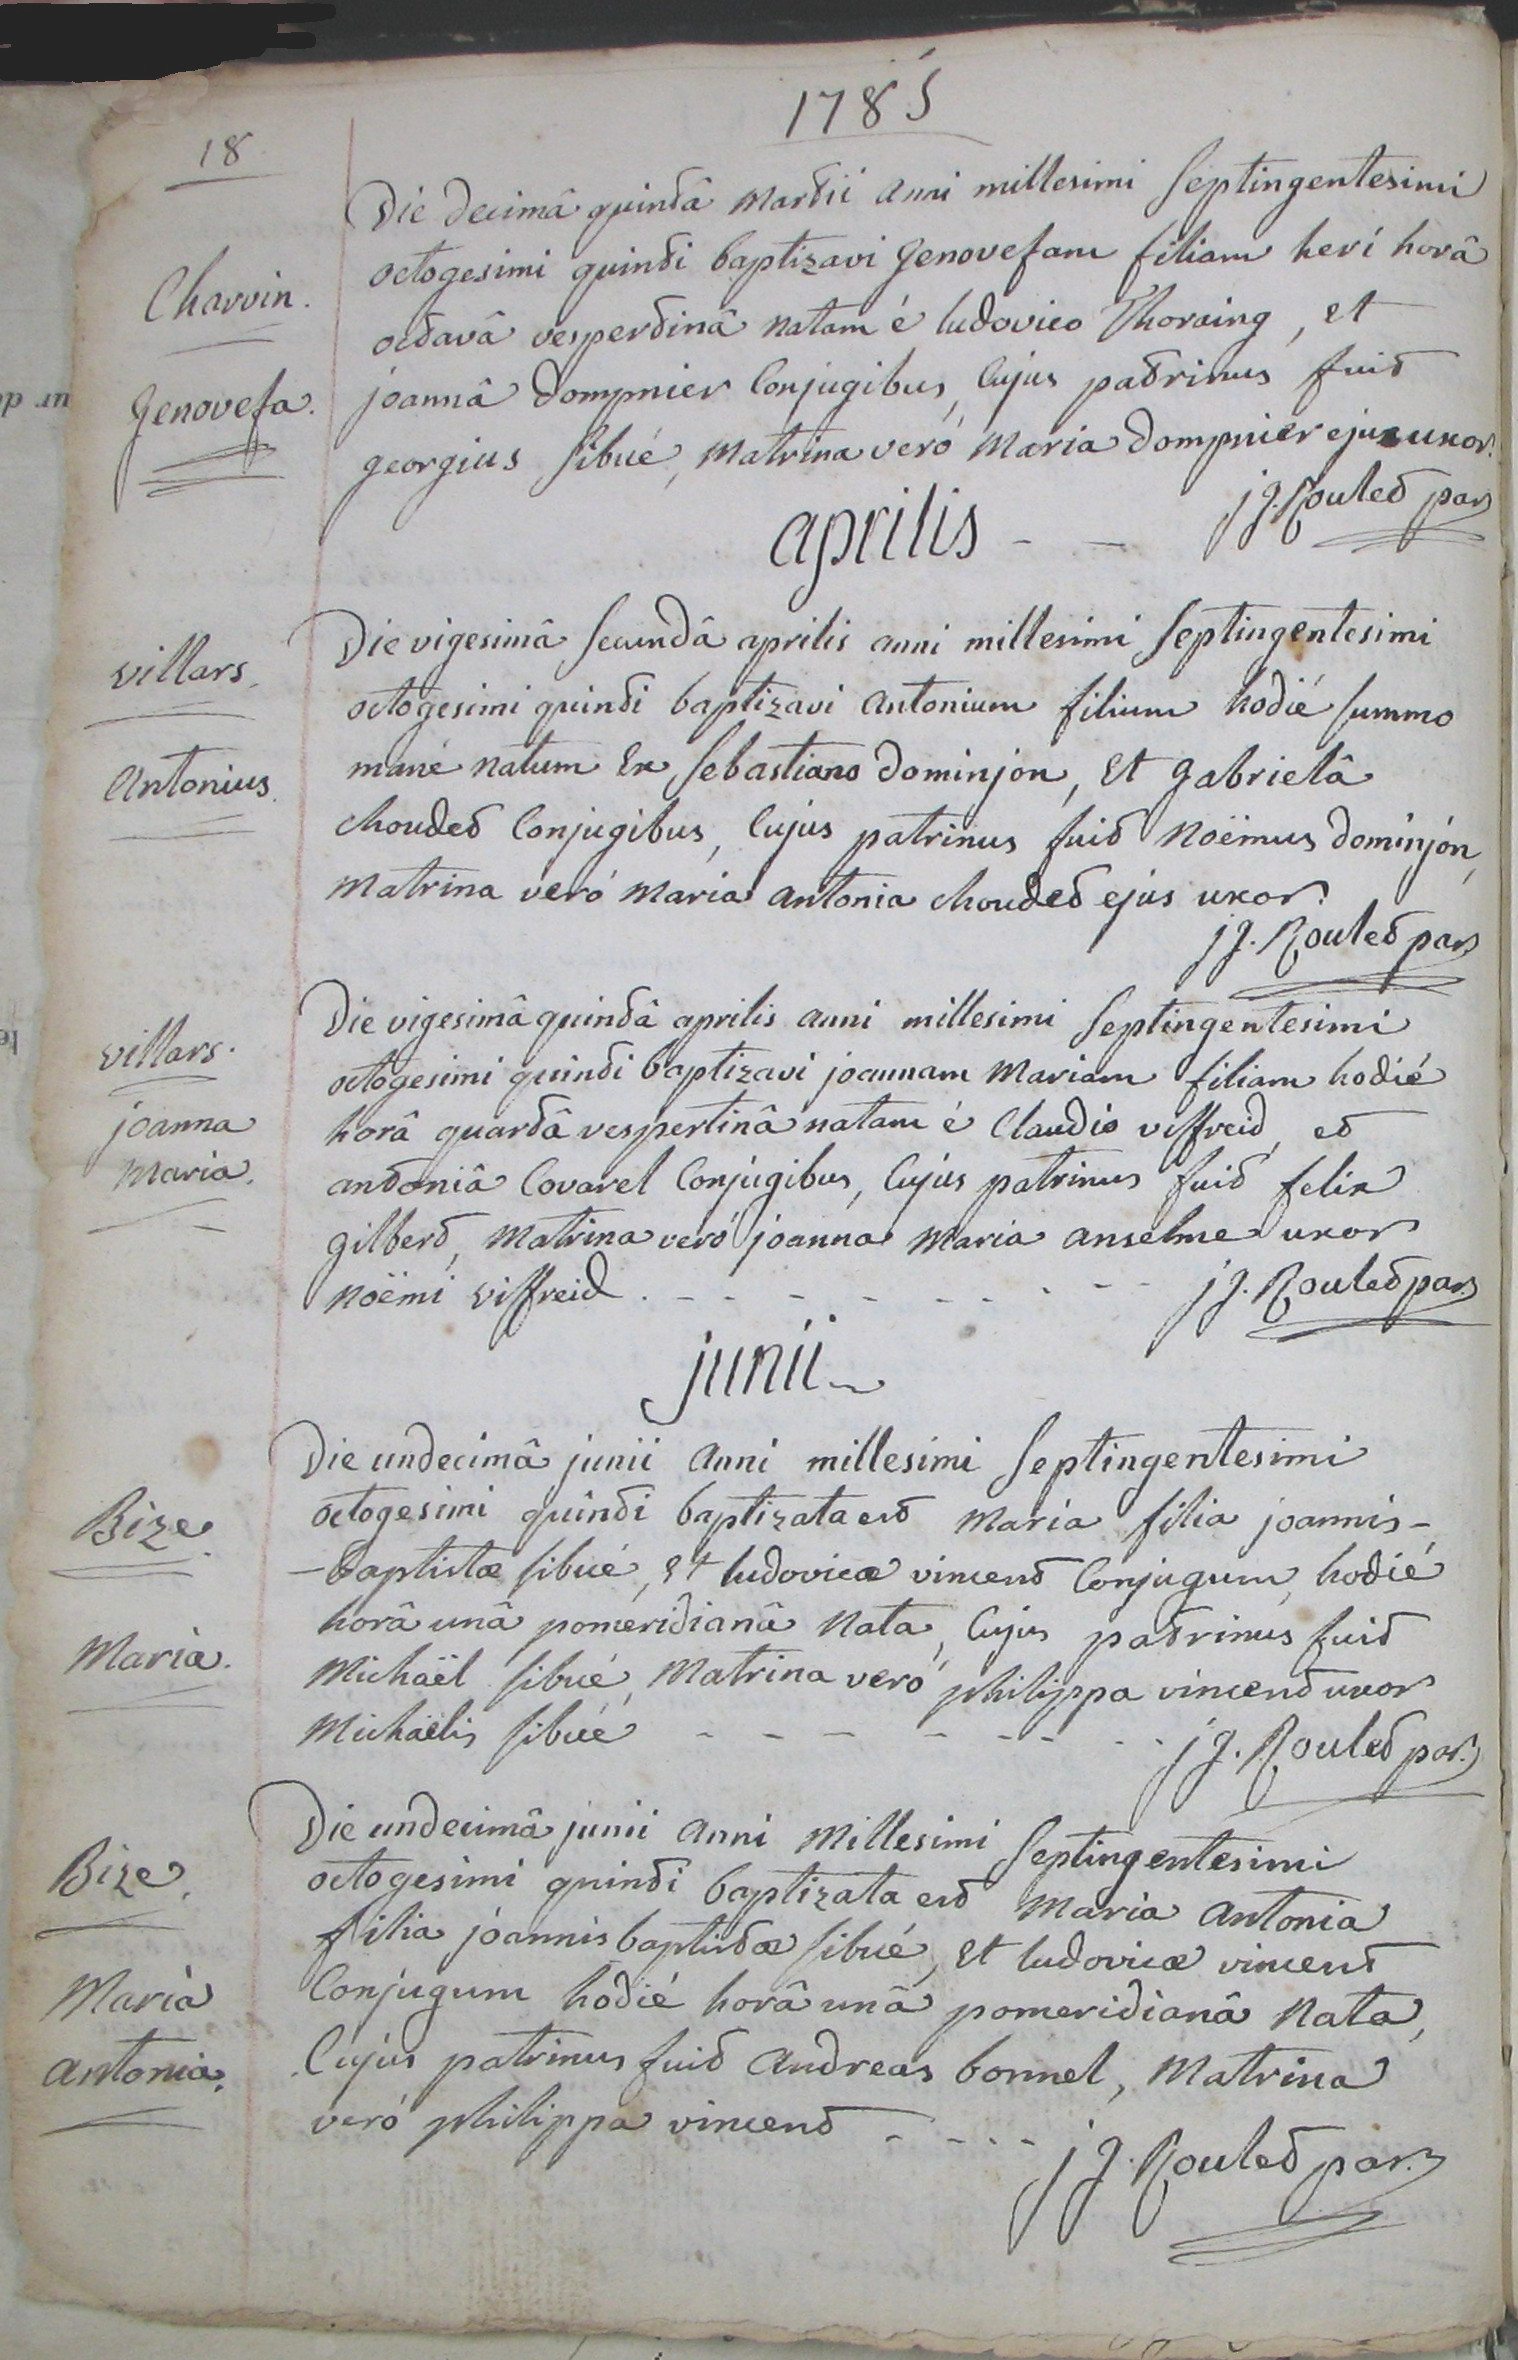 1785
18
Die decimâ quintâ martii anni millesimi septingentesimi
octogesimi quinti baptizavi genovefam filiam heri horâ
Charvin.
octavâ vespertinâ natam é ludovico Thoraing, et
Genovefa.
joannâ dompnier conjugibus, cujus patrinus fuit
georgius sibué, matrina veró maria dompnier ejus uxor.
j g. Roulet par.
aprilis - -
Die vigesimâ secundâ aprilis anni millesimi septingentesimi
villars.
octogesimi quinti baptizavi antonium filium hodié summo
Antonius.
mané natum ex sebastiano dominjon, et gabrielâ
choudet conjugibus, cujus patrinus fuit noëmus dominjon,
matrina veró maria antonia choudet ejus uxor.
j g. Roulet par.
Die vigesimâ quintâ aprilis anni millesimi septingentesimi
villars.
octogesimi quinti baptizavi joannam mariam filiam hodié
joanna
horâ quartâ vespertinâ natam é claudio viffreid, et
maria.
antoniâ covarel conjugibus, cujus patrinus fuit felix
gilbert, matrina veró joanna maria anselme uxor
noëmi viffreid . - - - - - - - - j g. Roulet par.
junii -
Die undecimâ junii anni millesimi septingentesimi
Bize.
octogesimi quinti baptizata est maria filia joannis-
-baptistæ sibué, et ludovicæ vincent conjugum, hodié
horâ unâ pomeridianâ nata, cujus patrinus fuit
Maria.
michaël sibué, matrina veró philippa vincent uxor
michaëlis sibué - - - - - - - j g. Roulet par.
Die undecimâ junii anni millesimi septingentesimi
Bize.
octogesimi quinti baptizata est maria antonia
filia joannis baptistæ sibué, et ludovicæ vincent
Maria
conjugum hodié horâ unâ pomeridianâ nata,
antonia.
cujus patrinus fuit andreas bonnel, matrina
veró philippa vincent - - - -
j g. Roulet par.